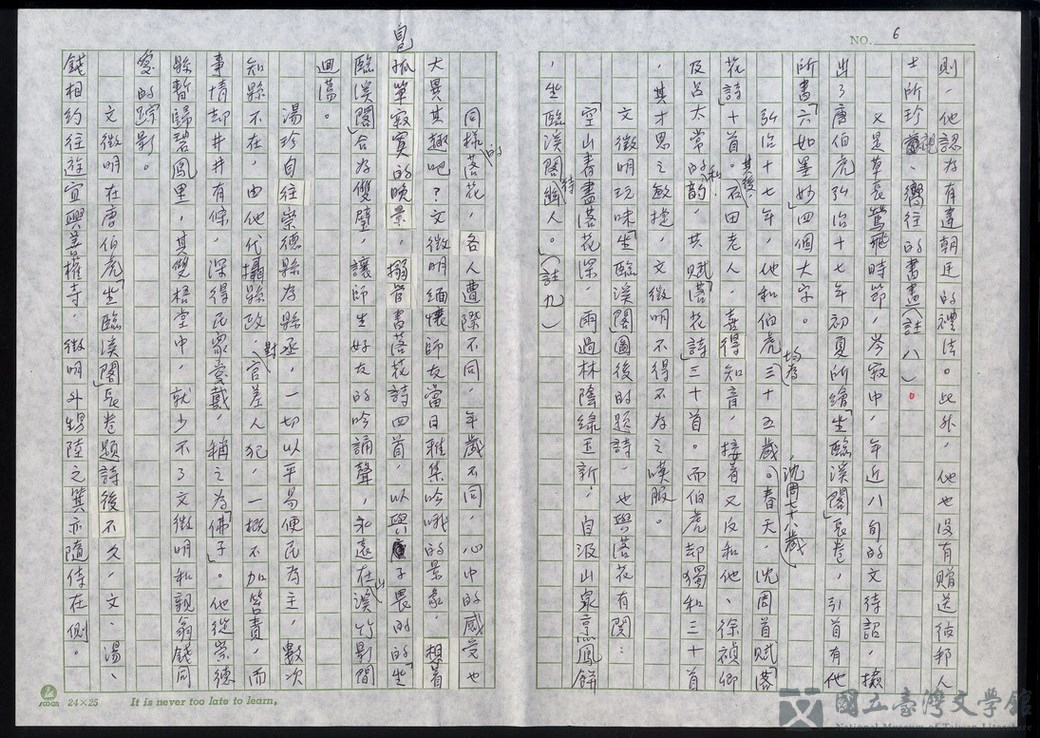 NO. 6
則，他認為有違朝廷的禮法。此外，他也沒有贈送彼邦人
士所珍視、嚮往的書畫（註八）。
又是草長鶯飛時節，岑寂中，年近八旬的文待詔，檢
出了唐伯虎弘治十七年初夏所繪「坐臨溪閣」長卷，引首有他
所書「六如墨妙」四個大字。
弘治十七年，他和伯虎均為三十五歲。春天，沈周（沈周七十八歲）首賦「落
花詩」十首。其後，石田老人，喜得知音，接著又反和他、徐禎卿
及呂太常的和韵，共賦「落花詩」三十首。而伯虎却獨和三十首
，其才思之敏捷，文徵明不得不為之嘆服。
文徵明玩味「坐臨溪閣圖」後的題詩，也與落花有関：
「空山春盡落花深，雨過林陰綠玉新，自汲山泉烹鳳餅
，坐臨溪閣待幽人。」（註九）
同樣的落花，各人遭際不同，年歲不同，心中的感受也
大異其趣吧？文徵明緬懷師友當日雅集吟哦的景象，想著
自己孤單寂寞的晚景，搦管書落花詩四首，以與子畏的「坐
臨溪閣」合為雙璧，讓師生好友的吟誦聲，永遠在溪山竹影間
迴蕩。
湯珍自往崇德縣為縣丞，一切以平易便民為主，數次
知縣不在，由他代攝縣政，對官差人犯，一概不加笞責，而
事情却井井有條，深得民眾愛戴，稱之為「佛子」。他從崇德
縣暫歸碧鳳里，其雙梧堂中，就少不了文徵明和親翁錢同
愛的踪影。
文徵明在唐伯虎「坐臨溪閣」長卷題詩後不久，文、湯、
錢相約往遊宜興善權寺，徵明外甥陸之箕亦隨侍在側。
24×25 It is never too late to learn.
國立臺灣文學館
National Museum of Taiwan Literature